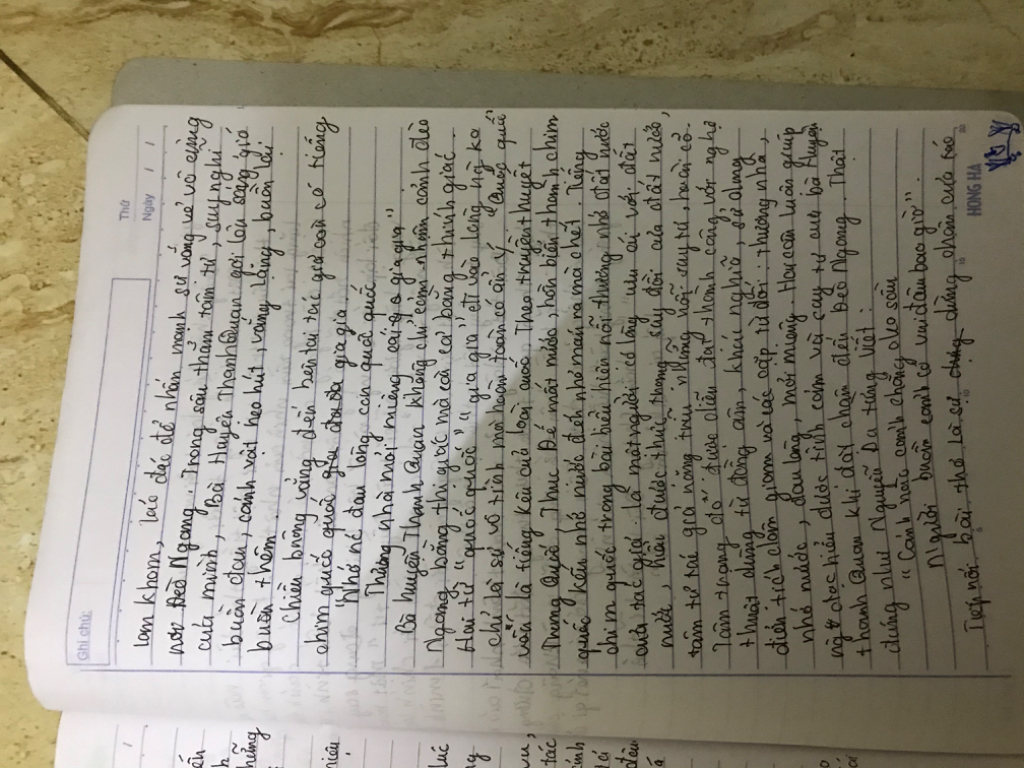 Ghi chú:
Thứ
Ngày / /
lom khom, lác đác để nhấn mạnh sự vắng vẻ vô cùng
nơi Đèo Ngang. Trong sâu thẳm tâm tư, suy nghĩ
của mình, Bà Huyện Thanh Quan gợi lên sáng giá
buồn đau, cảnh vật heo hút, vắng lặng, buồn lại
buồn thêm.
Chiều bỗng vẳng đến bên tai tác giả con có tiếng
chim quốc quốc gia đau đa gia gia.
"Nhớ nước đau lòng con quốc quốc
Thương nhà mỏi miệng cái gia gia"
Bà huyện Thanh Quan không chỉ cảm nhận cảnh đèo
Ngang bằng thị giác mà cả bằng thính giác.
Hai từ "quốc quốc" "gia gia" đi vào lòng ng ko
chỉ là sự vô tình mà hoàn toàn có ẩn ý "Quốc quốc"
vốn là tiếng kêu của loài quốc. Theo truyền thuyết
Trung Quốc Thục Đế mất nước, hồn biến thành chim
quốc kêu nhớ nước đến nhỏ máu ra mà chết. Tiếng
chim quốc trong bài biểu hiện nỗi thương nhớ đất nước
của tác giả. Là một người có lòng ưu ái với đất
nước, hiểu được thực trạng suy đồi của đất nước,
tâm tư tác giả nặng trĩu những nỗi suy tư, hoài cổ.
Tâm trạng đó được diễn đạt thành công với nghệ
thuật dùng từ đồng âm, khác nghĩa, sử dụng
điển tích dân gian và các cặp từ đối: thương nhà,
nhớ nước, đau lòng, mỏi miệng. Hai câu luận giúp
ng đọc hiểu được tình cảm và suy tư của bà Huyện
Thanh Quan khi đặt chân đến Đèo Ngang. Thật
đúng như Nguyễn Du từng viết:
"Cảnh nào cảnh chẳng đeo sầu
Người buồn cảnh có vui đâu bao giờ".
Tiếp nối bài thơ là sự dừng chân của tác
HONG HA